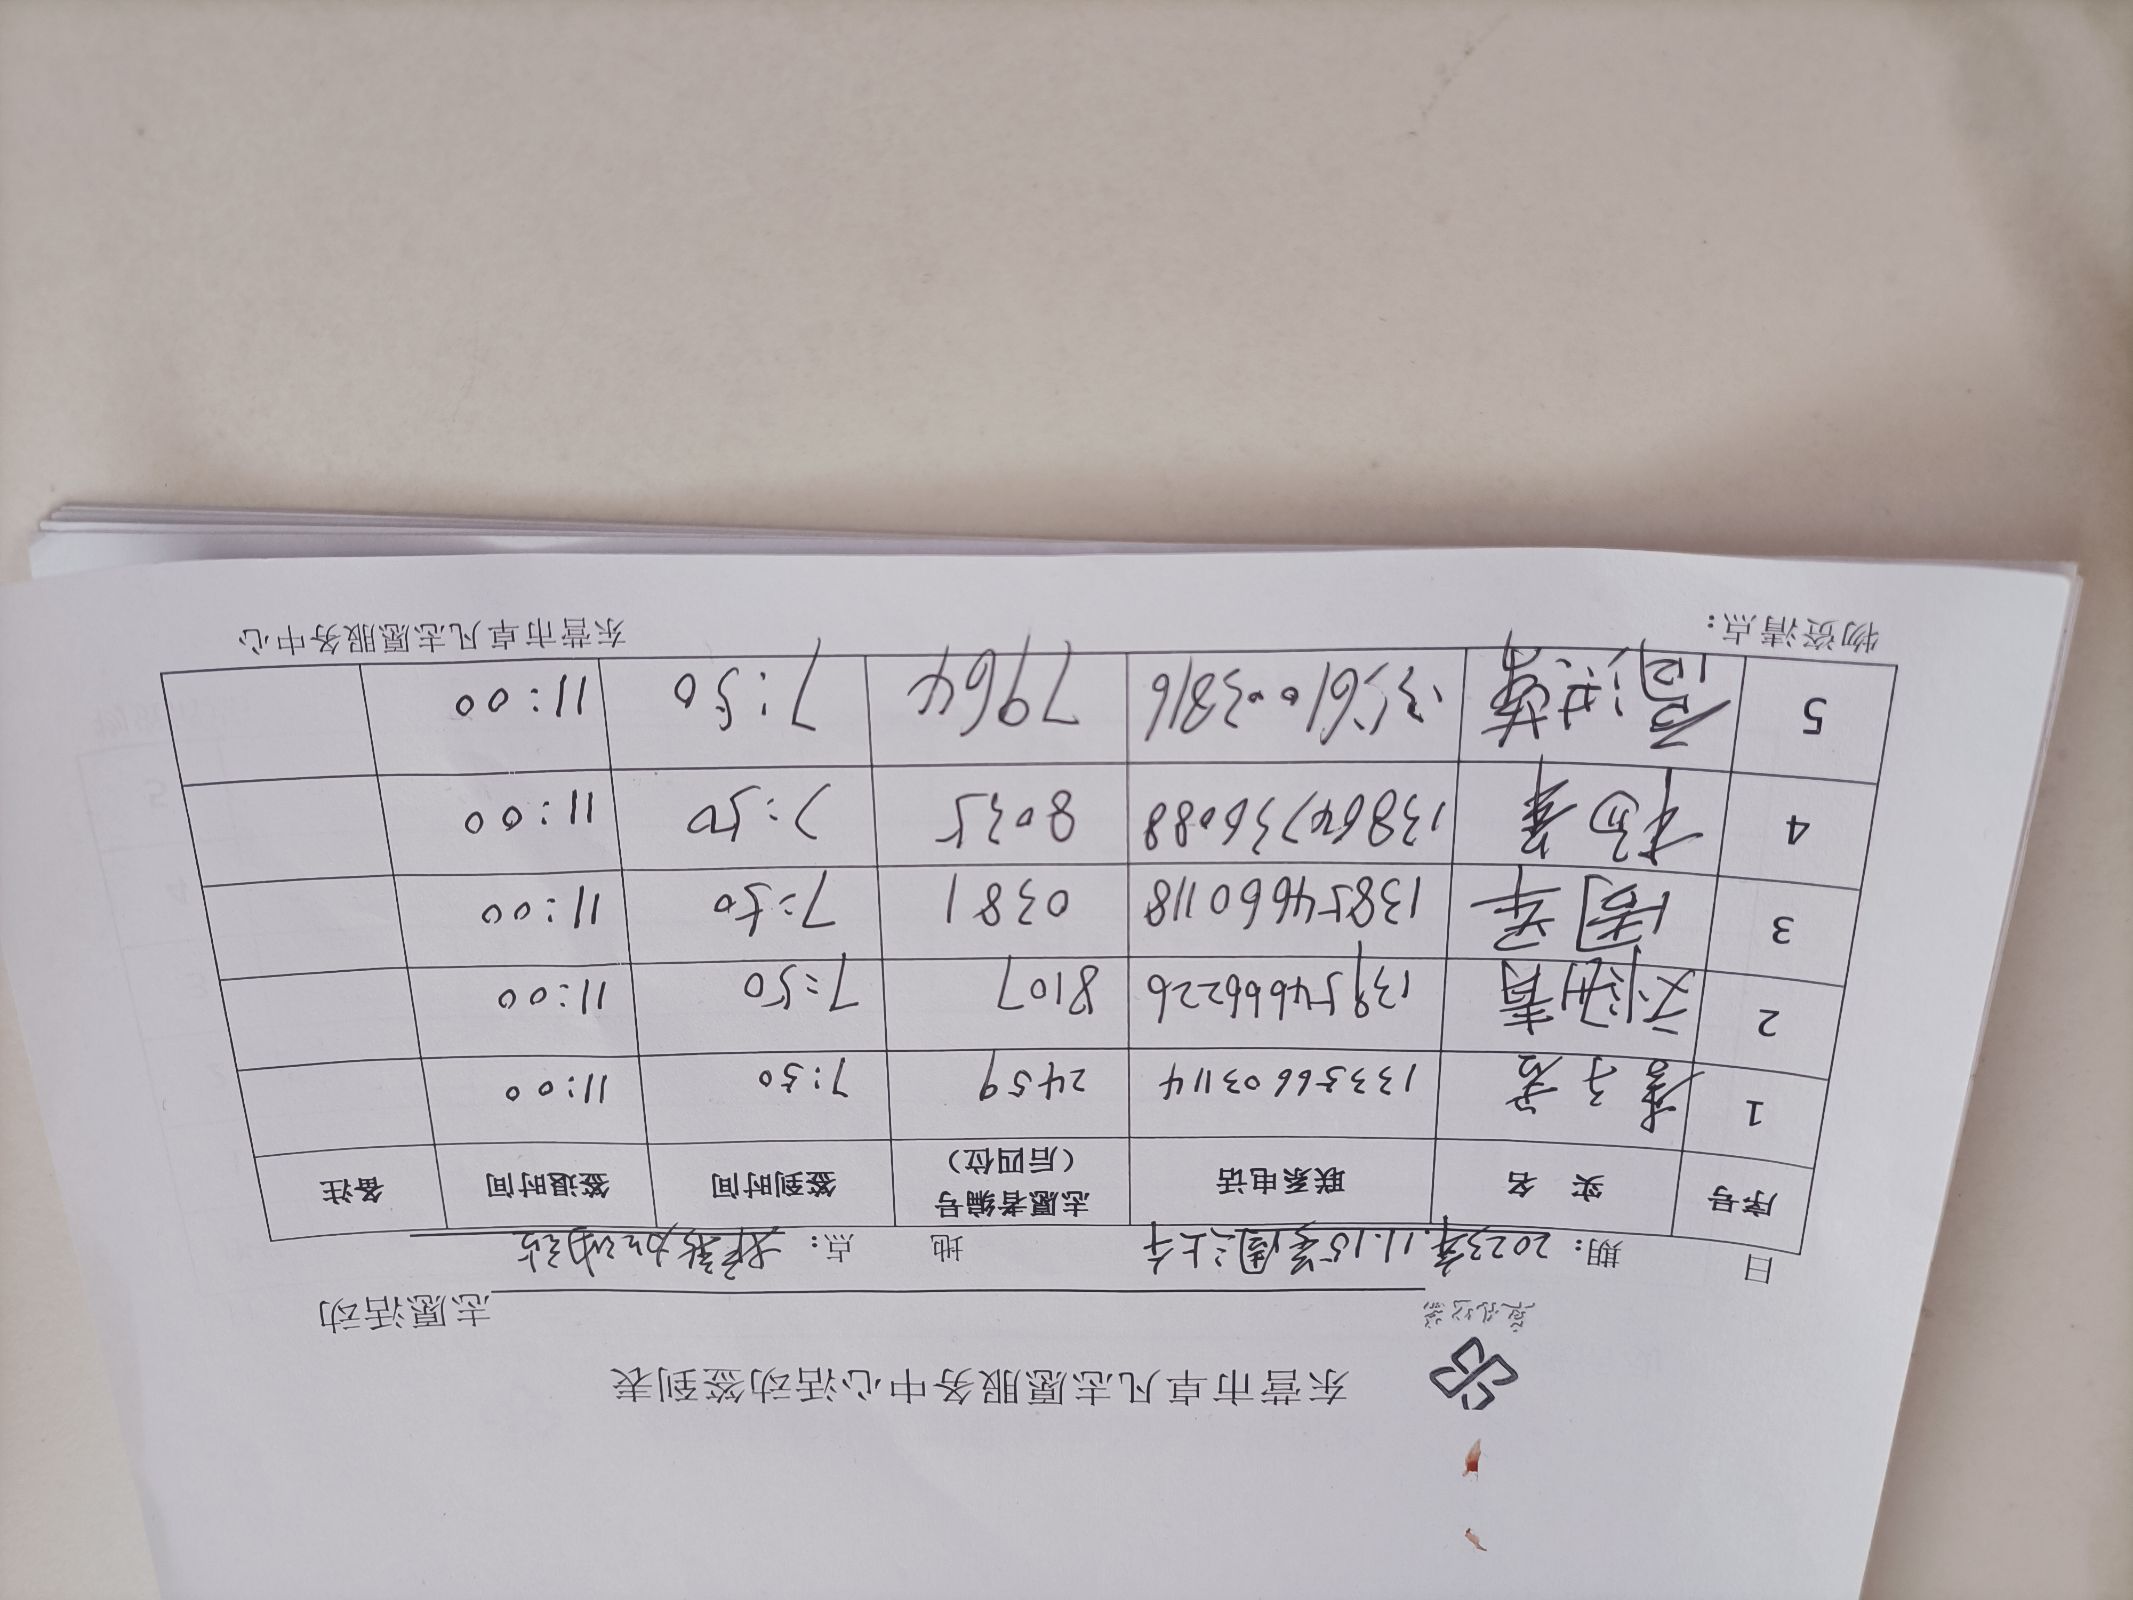 东营市卓凡志愿服务中心活动签到表
志愿活动
日 期：2023年.11.15号周三上午 地 点：
序号 实 名 联系电话 志愿者编号（后四位） 签到时间 签退时间 备注
1 13356603114 2459 7:50 11:00
2 13954666226 8107 7:50 11:00
3 周军 13854660118 0381 7:50 11:00
4 杨春 13864736088 8035 7:50 11:00
5 13561003816 7964 7:50 11:00
物资清点： 东营市卓凡志愿服务中心